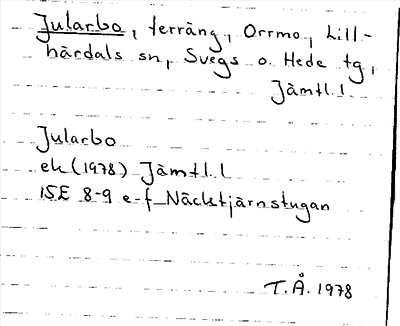 Jularbo, terräng, Orrmo, Lill-
härdals sn, Svegs o. Hede tg,
Jämtl. l.
Jularbo
ek (1978) Jämtl. l
15E 8-9 e-f Näckstjärnstugan
T.Å. 1978